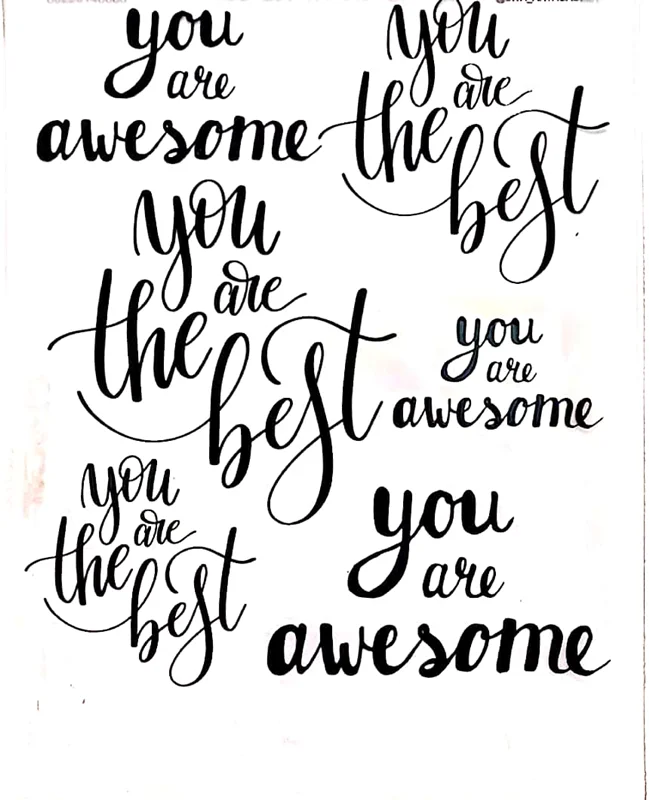 you
are
awesome
you
are
the
best
you
are
the
best
you
are
awesome
you
are
the
best
you
are
awesome